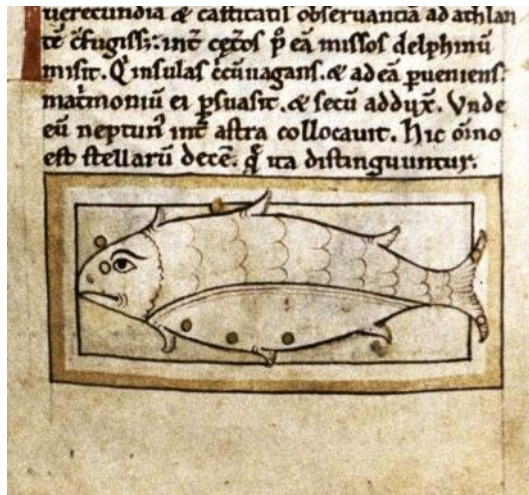 uerecundia & castitatis obseruanciā ad athlan
tē cfugiss; int̄ cet̄os p̄ eā missos delphinū
misit. Q̇ insulas c̄cūuagans. & ad eā ꝑueniens
mat̄moniū ei ꝑsuasit. & secū addux̄. Vnde
eū neptun᾽ int̄ astra collocauit. Hic oīno
est stellarū decē. q̄ ita distinguuntur.